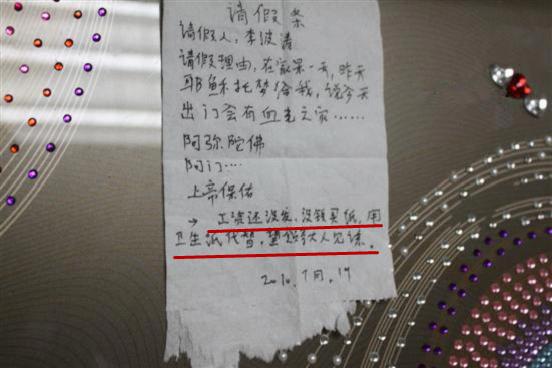 请假条
请假人，李波清
请假理由，在家呆一天，昨天
耶稣托梦给我，说今天
出门会有血光之灾……
阿弥陀佛
阿门….
上帝保佑
→ 工资还没发，没钱买纸，用
卫生纸代替，望大人见谅。
2010.7月.19